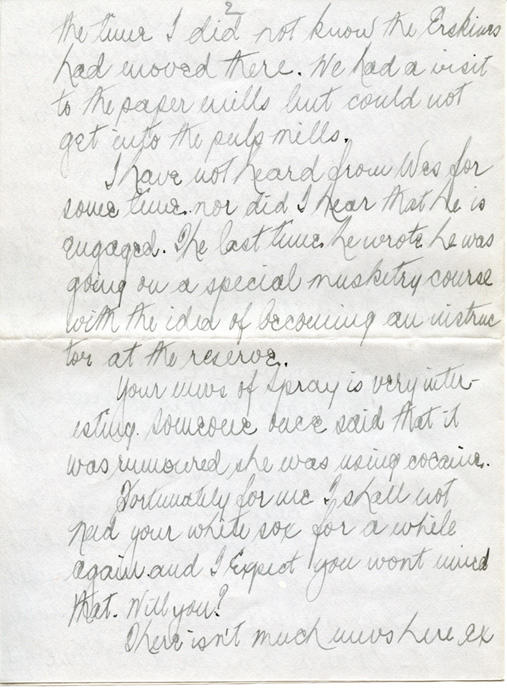 2
the time I did not know the Erskines
had moved there. We had a visit
to the paper mills but could not
get into the pulp mills.
I have not heard from Wes for
some time nor did I hear that he is
engaged. The last time he wrote he was
going on a special musketry course
with the idea of becoming an instruc
tor at the reserve.
Your news of Spray is very inter-
esting. Someone once said that it
was rumoured she was using cocaine.
Fortunately for me I shall not
need your white sox for a while
again and I expect you wont mind
that. Will you?
There isn't much news here ex